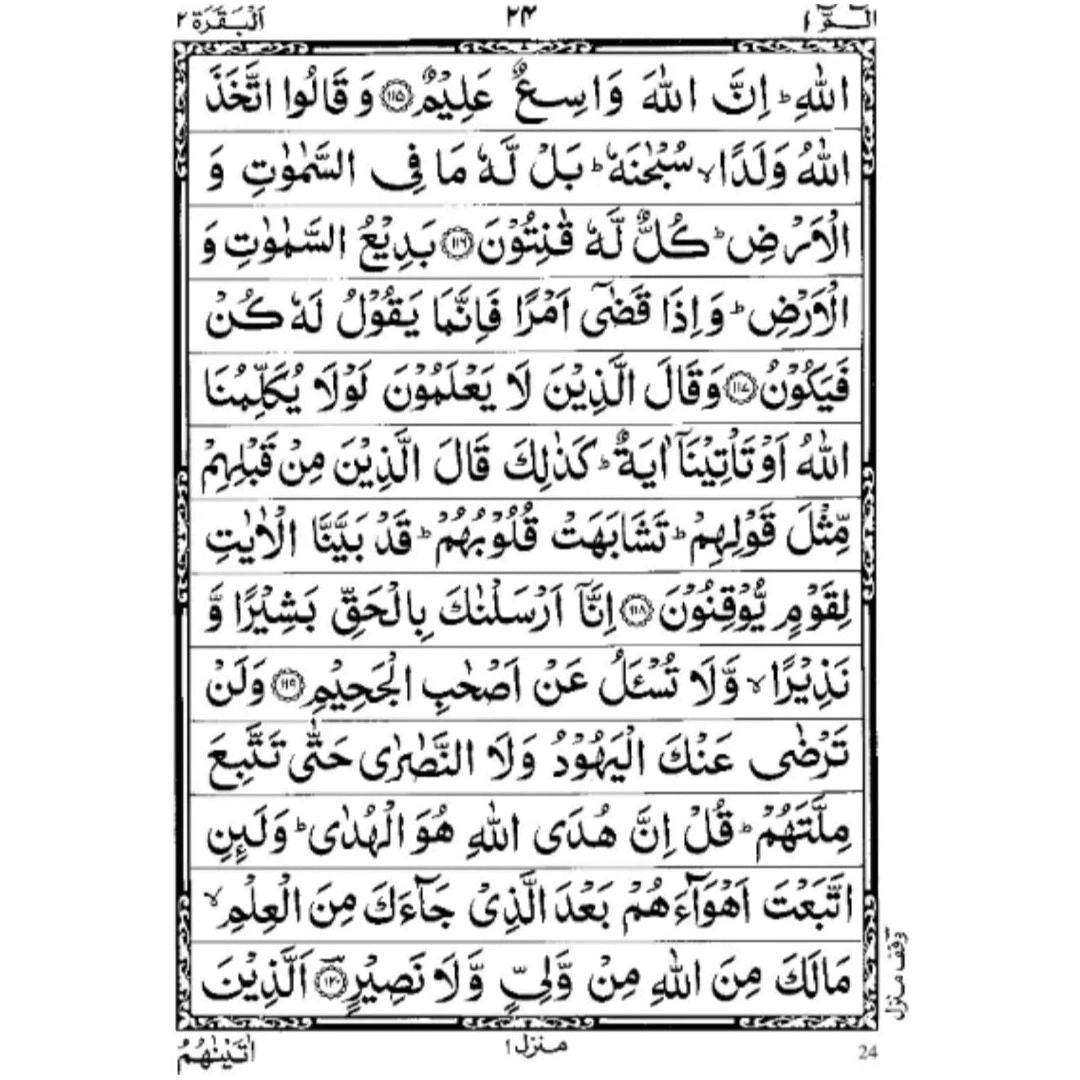 الٓمّٓ ١
٢٤
اَلْبَقَرَة ٢
اللّٰهِ ؕ اِنَّ اللّٰهَ وَاسِعٌ عَلِیْمٌ ۝۱۱۵ وَ قَالُوا اتَّخَذَ
اللّٰهُ وَلَدًا ۙ سُبْحٰنَهٗ ؕ بَلْ لَّهٗ مَا فِی السَّمٰوٰتِ وَ
الْاَرْضِ ؕ كُلٌّ لَّهٗ قٰنِتُوْنَ ۝۱۱۶ بَدِیْعُ السَّمٰوٰتِ وَ
الْاَرْضِ ؕ وَاِذَا قَضٰۤی اَمْرًا فَاِنَّمَا یَقُوْلُ لَهٗ كُنْ
فَیَكُوْنُ ۝۱۱۷ وَقَالَ الَّذِیْنَ لَا یَعْلَمُوْنَ لَوْلَا یُكَلِّمُنَا
اللّٰهُ اَوْ تَاْتِیْنَاۤ اٰیَةٌ ؕ كَذٰلِكَ قَالَ الَّذِیْنَ مِنْ قَبْلِهِمْ
مِّثْلَ قَوْلِهِمْ ؕ تَشَابَهَتْ قُلُوْبُهُمْ ؕ قَدْ بَیَّنَّا الْاٰیٰتِ
لِقَوْمٍ یُّوْقِنُوْنَ ۝۱۱۸ اِنَّاۤ اَرْسَلْنٰكَ بِالْحَقِّ بَشِیْرًا وَّ
نَذِیْرًا ۙ وَّلَا تُسْـَٔلُ عَنْ اَصْحٰبِ الْجَحِیْمِ ۝۱۱۹ وَلَنْ
تَرْضٰی عَنْكَ الْیَهُوْدُ وَلَا النَّصٰرٰی حَتّٰی تَتَّبِعَ
مِلَّتَهُمْ ؕ قُلْ اِنَّ هُدَی اللّٰهِ هُوَ الْهُدٰی ؕ وَلَىِٕنِ
اتَّبَعْتَ اَهْوَآءَهُمْ بَعْدَ الَّذِیْ جَآءَكَ مِنَ الْعِلْمِ ۙ
مَا لَكَ مِنَ اللّٰهِ مِنْ وَّلِیٍّ وَّلَا نَصِیْرٍ ۝۱۲۰ اَلَّذِیْنَ
وقف منزل
اٰتَیْنٰهُمُ
منزل ١
24